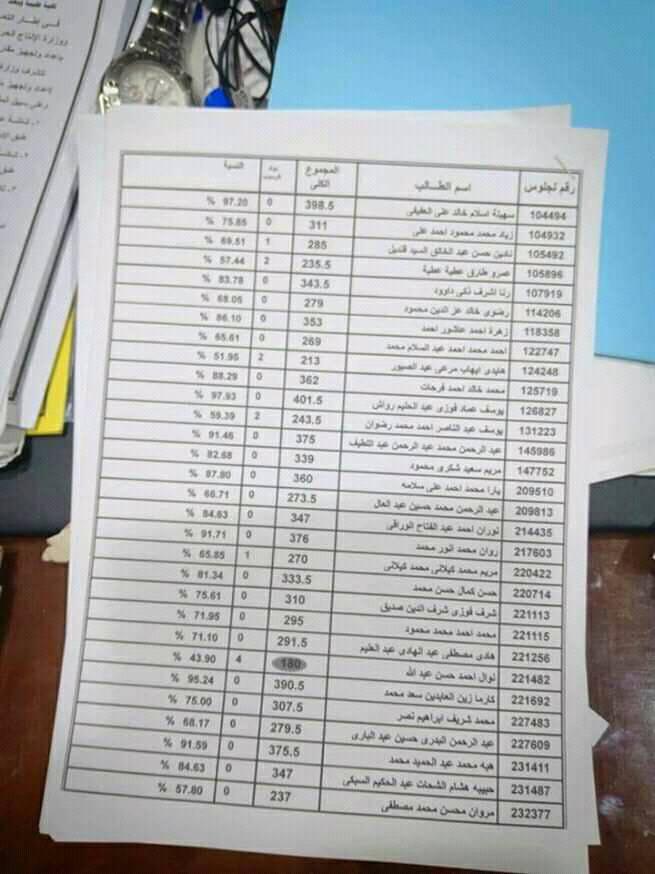 رقم لجلوس اسم الطالب المجموع الكلى النسبة
104494 سهيلة اسلام خالد على العفيفى 398.5 0 97.20 %
104932 زياد محمد محمود احمد على 311 0 75.85 %
105492 نادين حسن عبد الخالق السيد قنديل 285 1 69.51 %
105896 عمرو طارق عطية عطية 235.5 2 57.44 %
107919 رنا اشرف ذكى داوود 343.5 0 83.78 %
114206 رضوى خالد عز الدين محمود 279 0 68.05 %
118358 زهرة احمد عاشور احمد 353 0 86.10 %
122747 احمد محمد احمد عبد السلام محمد 269 0 65.61 %
124248 هايدى ايهاب مرعى عبد الصبور 213 2 51.95 %
125719 محمد خالد احمد فرحات 362 0 88.29 %
126827 يوسف عماد فوزى عبد الحليم رواش 401.5 0 97.93 %
131223 يوسف عبد الناصر احمد محمد رضوان 243.5 2 59.39 %
145986 عبد الرحمن محمد عبد الرحمن عبد اللطيف 375 0 91.46 %
147752 مريم سعيد شكرى محمود 339 0 82.68 %
209510 يارا محمد احمد على سلامه 360 0 87.80 %
209813 عبد الرحمن محمد حسين عبد العال 273.5 0 66.71 %
214435 نوران احمد عبد الفتاح الوراقى 347 0 84.63 %
217603 روان محمد انور محمد 376 0 91.71 %
220422 مريم محمد كيلانى محمد كيلانى 270 1 65.85 %
220714 حسن كمال حسن محمد 333.5 0 81.34 %
221113 شرف فوزى شرف الدين صديق 310 0 75.61 %
221115 محمد احمد محمد محمود 295 0 71.95 %
221256 هادى مصطفى عبد الهادى عبد العليم 291.5 0 71.10 %
221482 نوال احمد حسن عبد الله 180 4 43.90 %
221692 كارما زين العابدين سعد محمد 390.5 0 95.24 %
227483 محمد شريف ابراهيم نصر 307.5 0 75.00 %
227609 عبد الرحمن البدرى حسين عبد البارى 279.5 0 68.17 %
231411 هيه محمد عبد الحميد محمد 375.5 0 91.59 %
231487 حبيبه هشام الشحات عبد الحكيم السبكى 347 0 84.63 %
232377 مروان محسن محمد مصطفى 237 0 57.80 %